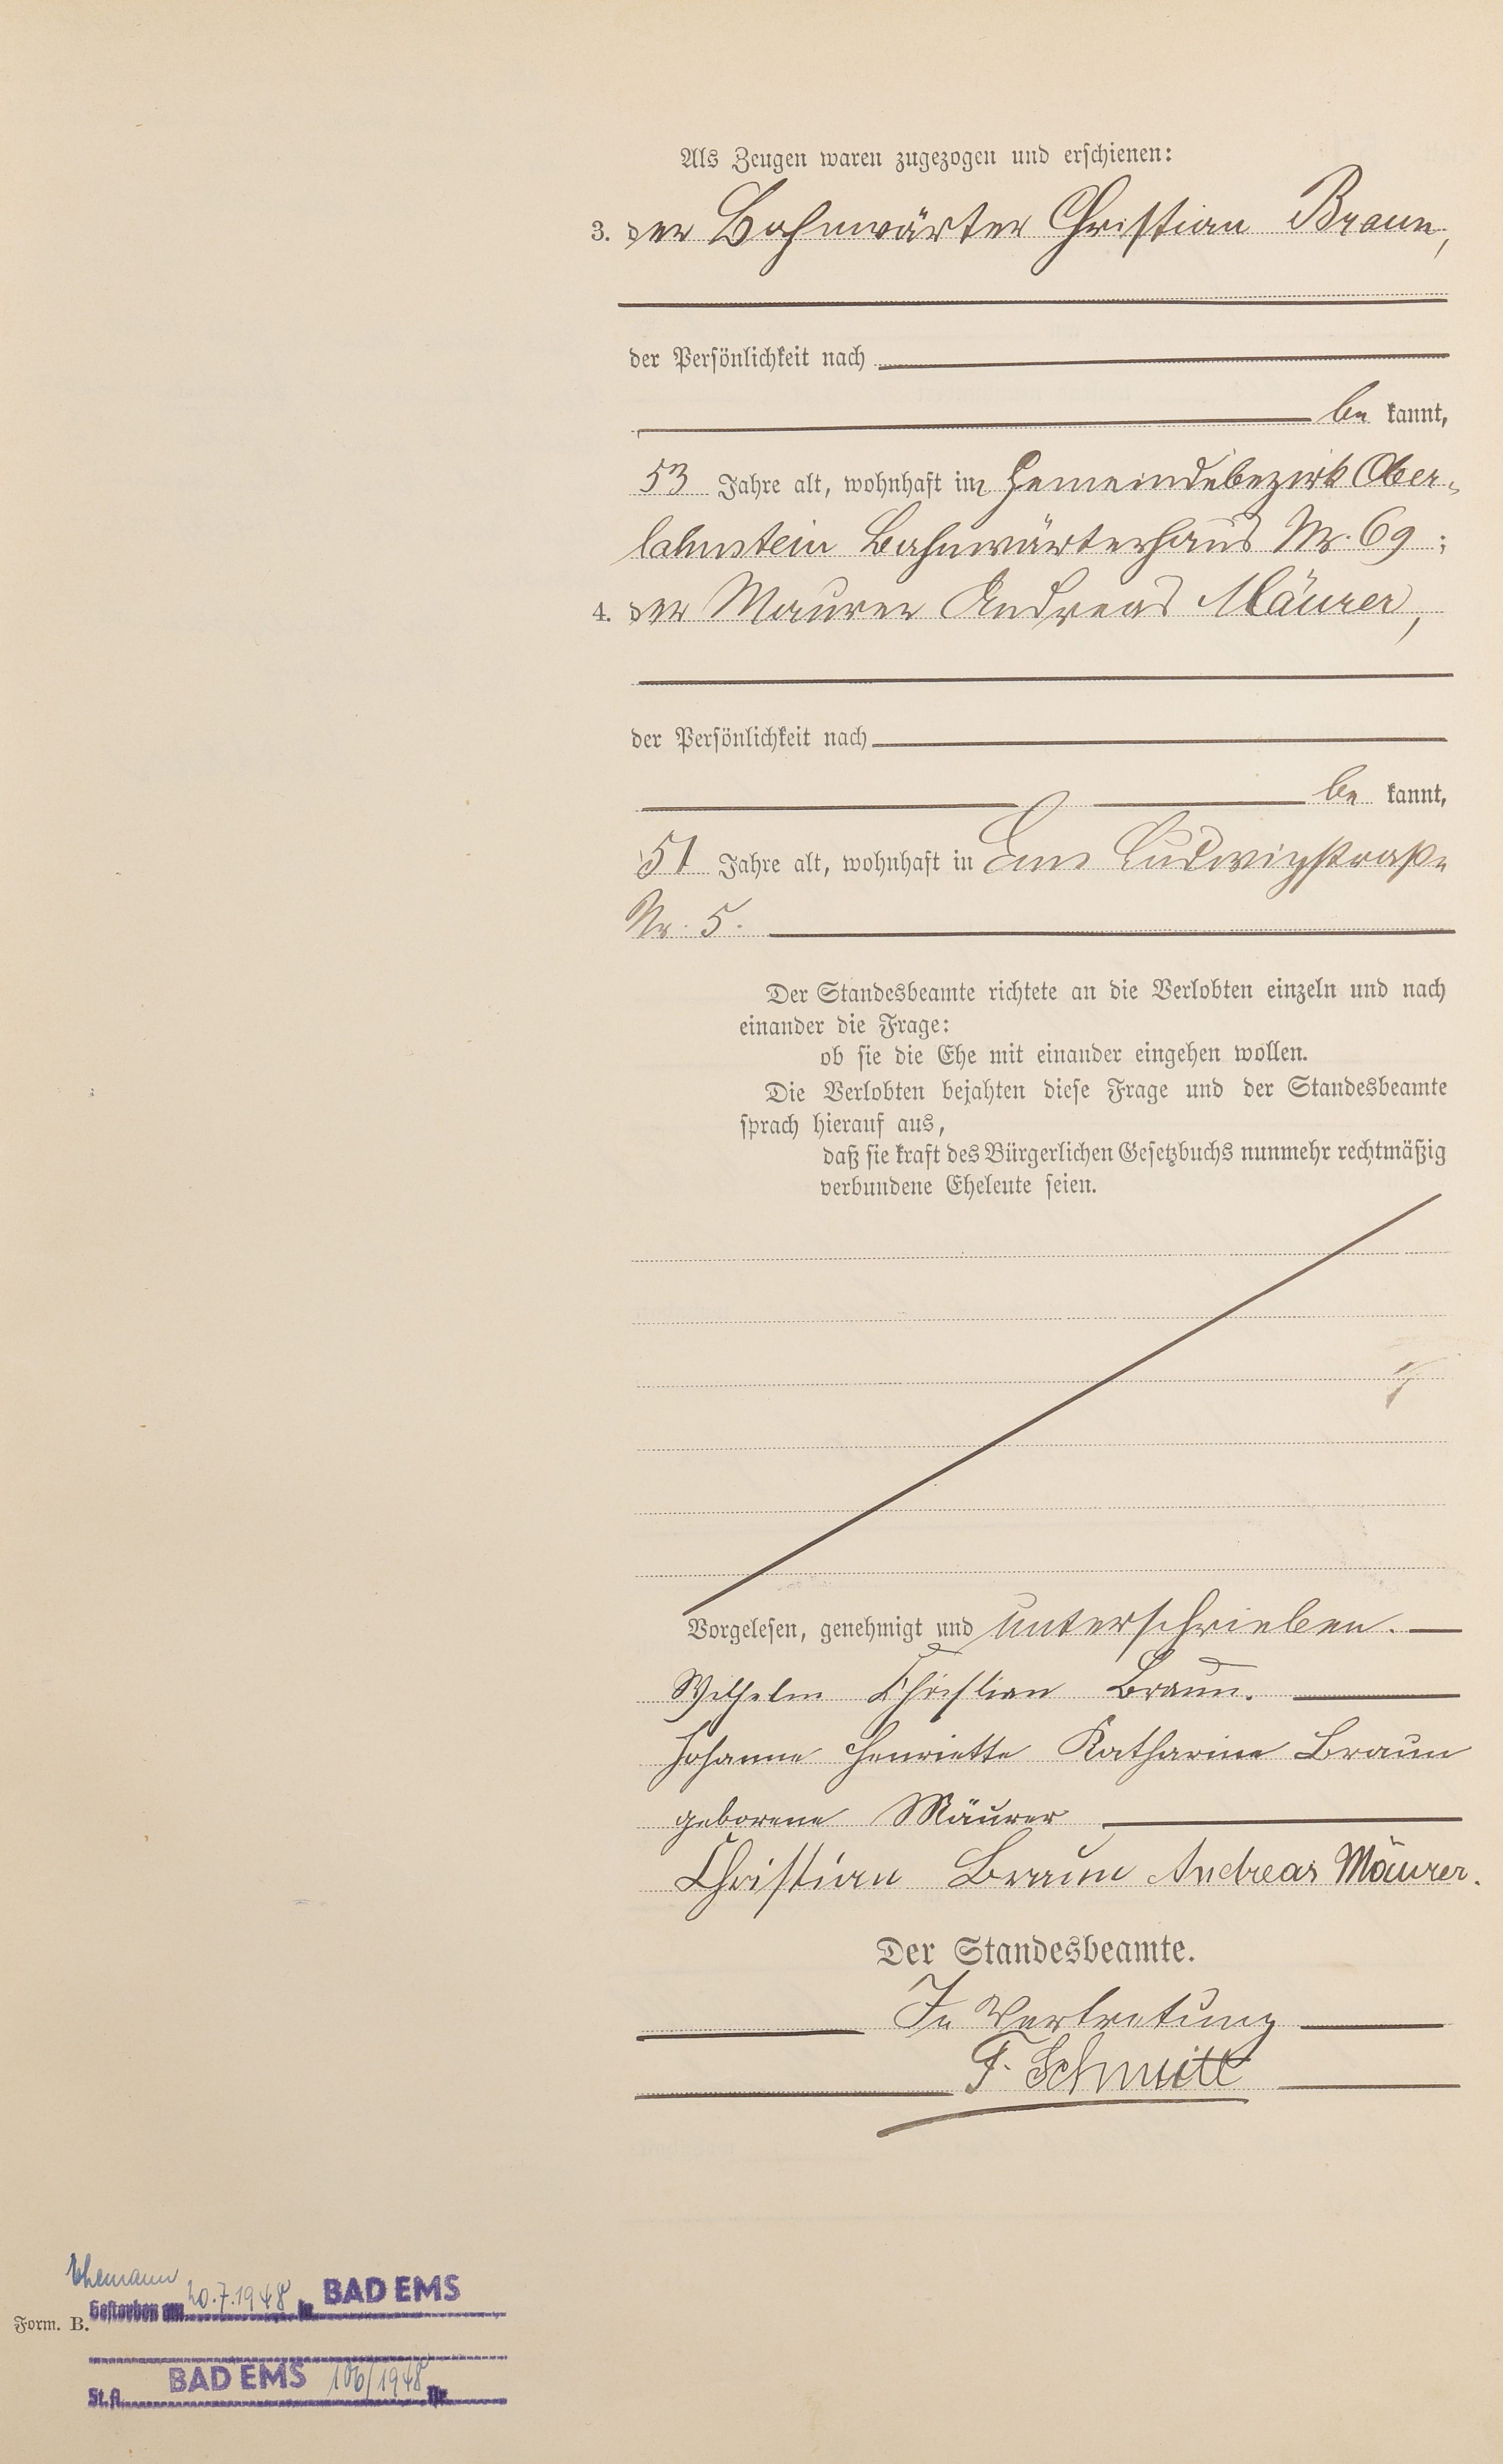 Als Zeugen waren zugezogen und erschienen:
3. der Bahnwärter Christian Braun,
der Persönlichkeit nach
be kannt,
53 Jahre alt, wohnhaft im Gemeindebezirk Ober-
lahnstein Bahnwärterhaus Nr. 69;
4. der Maurer Andreas Mäurer,
der Persönlichkeit nach
be kannt,
51 Jahre alt, wohnhaft in Ems Ludwigstraße
Nr. 5.
Der Standesbeamte richtete an die Verlobten einzeln und nach
einander die Frage:
ob sie die Ehe mit einander eingehen wollen.
Die Verlobten bejahten diese Frage und der Standesbeamte
sprach hierauf aus,
daß sie kraft des Bürgerlichen Gesetzbuchs nunmehr rechtmäßig
verbundene Eheleute seien.
Vorgelesen, genehmigt und unterschrieben.
Wilhelm Christian Braun.
Johanne Henriette Katharine Braun
geborene Mäurer
Christian Braun Andreas Mäurer.
Der Standesbeamte.
In Vertretung
F. Schmitt
Ehemann
Gestorben am 20.7.1948 in BAD EMS
Form. B.
St.A. BAD EMS 106/1948 Nr.